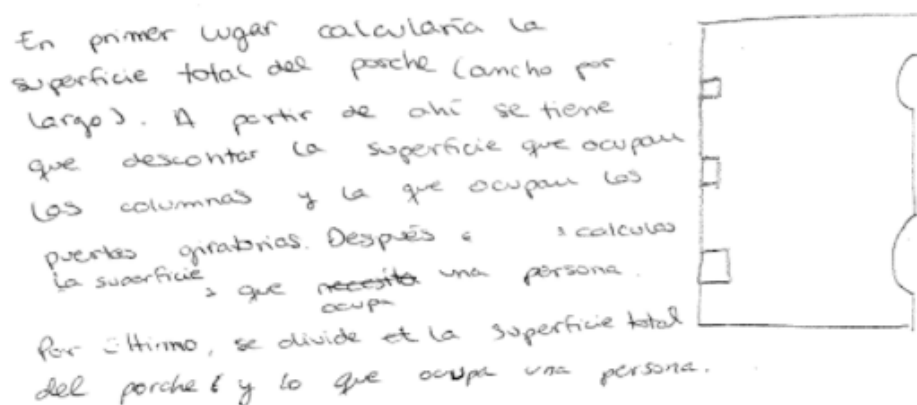 En primer lugar calcularía la
superficie total del porche (ancho por
largo). A partir de ahí se tiene
que descontar la superficie que ocupan
las columnas y la que ocupan las
puertas giratorias. Después calculas
la superficie que necesita una persona.
ocupa
Por último, se divide et la superficie total
del porche y lo que ocupa una persona.